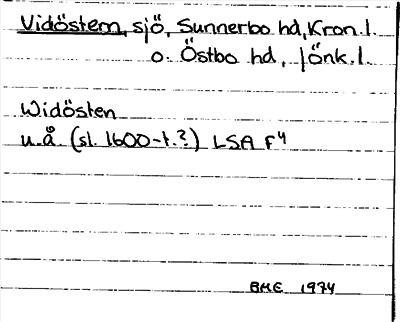 Vidöstern, sjö, Sunnerbo hd, Kron. l.
o. Östbo hd, Jönk. l.
Widösten
u. å. (sl. 1600-t.?) LSA F4
BME 1974